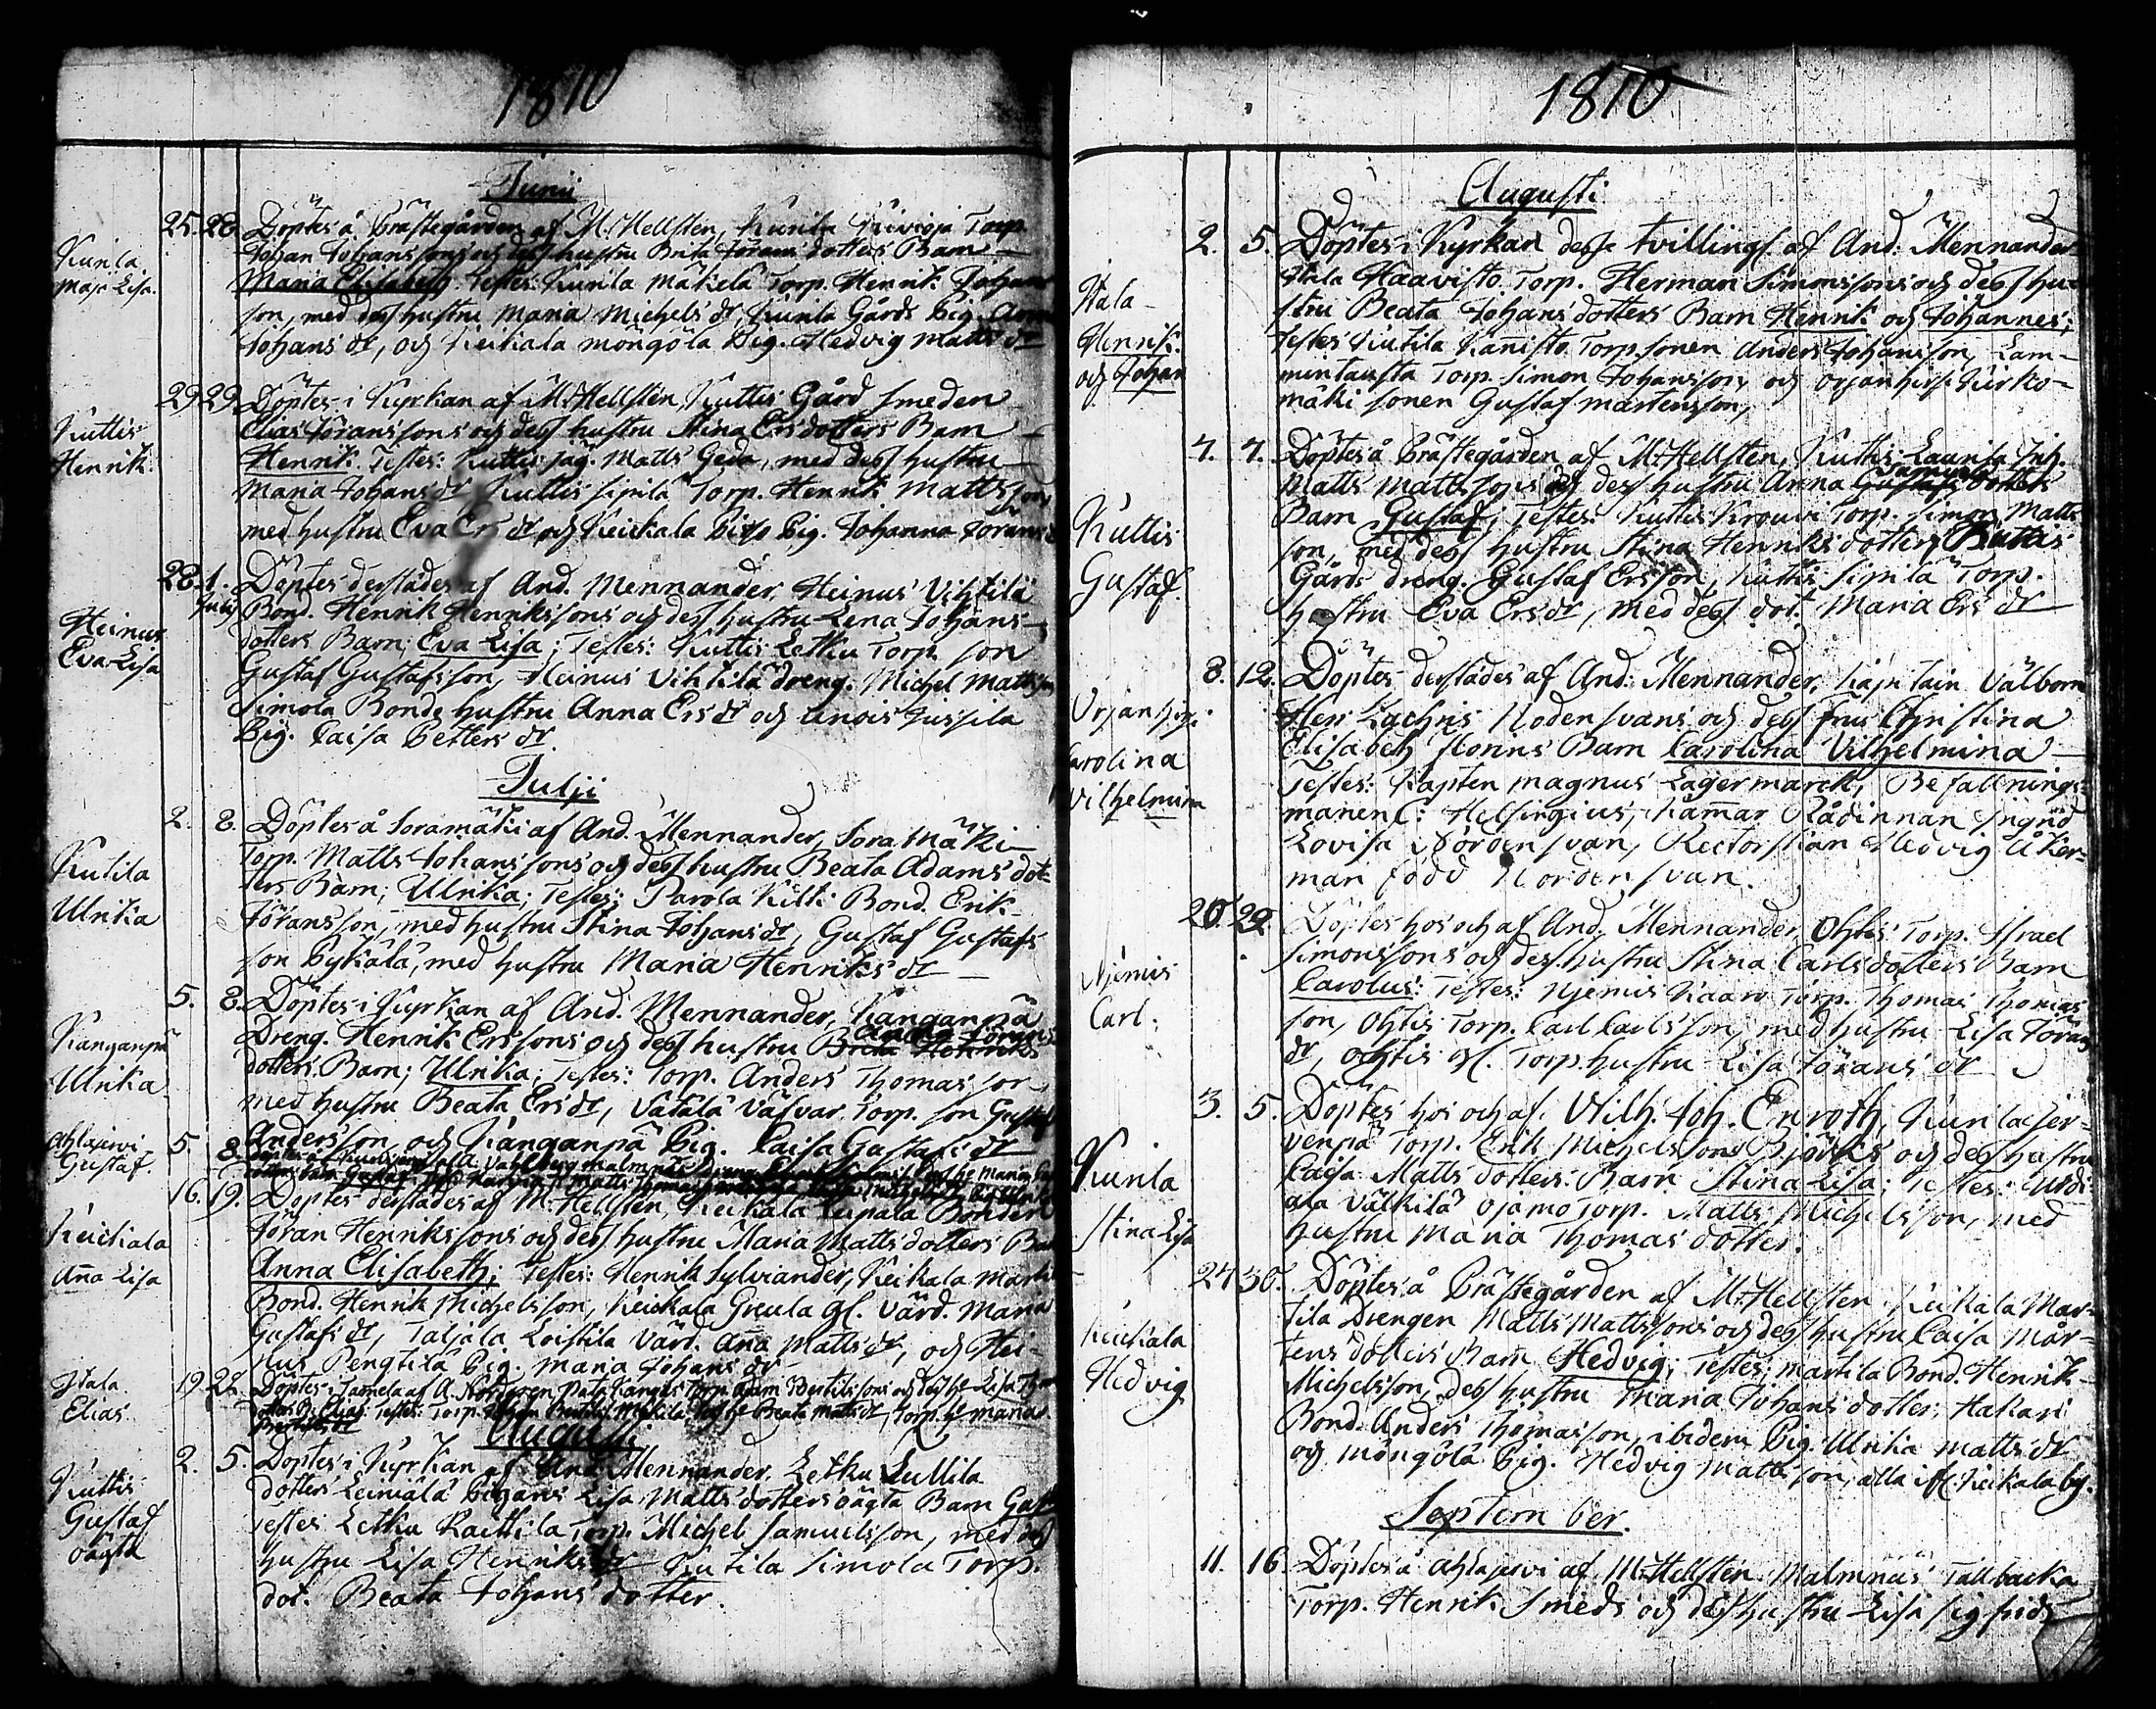 1810
Junii
25. 28. Döptes å Prästegården af M. Hellsten, Kunila Kivioja Torp.
Kunila
Maja Lisa.
Johan Johanssons och dess hustru Brita Jörans dotters Barn
Maria Elisabeth. Testes: Kunila Mäkelä Torp. Henrik Johans
son, med dess hustru Maria Michels dr, Kunila Gårds Pig. Anna
Johans dr, och Keikala Möngölä Pig. Hedvig Matts dr
29 29 Döptes i Kyrkan af M. Hellstén, Kuttis Gård Smeden
Kuttis
Henrik.
Elias Jöranssons och dess hustru Stina Ersdotters Barn
Henrik. Testes: Kuttis Jäg. Matts Geda, med dess hustru
Maria Johans dr Kuttis Sipilä Torp. Henrik Mattsson
med hustru Eva Ers dr, och Keickala Pig. Johanna Jörans
28. 1. Julij Döptes derstädes af And. Mennander, Heinus Vihtilä
Heinus
Eva Lisa
Bond. Henrik Henrikssons och dess hustru Lena Johans-
dotters Barn; Eva Lisa; Testes: Kuttis Letku Torp. son
Gustaf Gustafsson, Heinus Vihtilä Dreng. Michel Mattsson
Simola Bonde hustru Anna Ers dr och Anois Jussila
Pig. Caisa Petters dr.
Julii
2. 8. Döptes å Soramäki af And. Mennander, Sora Mäki
Kutila
Ulrika
Torp. Matts Johanssons och dess hustru Beata Adams dot-
ters Barn; Ulrika; Testes; Parola Kilti Bond. Erik
Jöransson, med hustru Stina Johans dr, Gustaf Gustafs
son Pykälä, med hustru Maria Henriks dr
5. 8. Döptes i Kyrkan af And. Mennander, Kanganpä
Kanganpä
Ulrika.
Dreng. Henrik Erssons och dess hustru Brita Henriks
dotters Barn; Ulrika; Testes: Torp. Anders Thomasson
med hustru Beata Ers dr, Satala Väfvar Torp. son Gustaf
Andersson och Kanganpä Pig. Caisa Gustafs dr
Ahlajervi
Gustaf.
5. 8.
16. 19. Döptes derstädes af M. Hellsten, Keikala Leipälä Bonden
Keickala
Aña Lisa
Jöran Henrikssons och dess hustru Maria Matts dotters
Anna Elisabeth; Testes: Henrik Sylviander, Keikala Marti
Bond. Henrik Michelsson, Keickala Greula gl. Värd. Maria
Gustafs dr, Taljala Loistila Värd. Aña Matts dr, och Hei-
nus Pengtilä Pig. Maria Johans dr
19 22. Döptes i Tamela af A. Nordgren Torp. Adam Bertilssons
Itala.
Elias.
Augusti
2. 5. Döptes i Kyrkan af And. Mennander. Letku Lullila
Kuttis
Gustaf
oägta
dotters Leiniälä Pigans Lisa Matts dotters oägta Barn Gust
Testes Letku Raittila Torp. Michel Samuelsson, med dess
hustru Lisa Henriks dr Kutila Simola Torp.
dot. Beata Johans dotter.
1810
Augusti
2. 5. Döptes i Kyrkan desse tvillings af And. Mennander
Itala
Henrik.
och Johan
Itala Haavisto Torp. Herman Simonssons och dess hu-
stru Beata Johans dotters Barn Henrik och Johannes;
Testes Kutila Kañisto Torp. sonen Anders Johansson, Lam-
mintausta Torp. Simon Johansson, och Orjanhirsi Kirko-
mäki sonen Gustaf Mårtensson,
7. 7. Döptes å Prästegården af M. Hellsten, Kuttis Laurila Inh.
Kuttis
Gustaf.
Matts Mattssons och dess hustru Anna Samuels dotters
Barn Gustaf; Testes: Kuttis Krouvi Torp. Simon Matts
son, med dess hustru Stina Henriks dotter, Kuttis
Gårds dreng. Gustaf Ersson, Kuttis Sipilä Torp.
hustru Eva Ers dr, med dess dot. Maria Ers dr
8. 12. Döptes derstädes af And. Mennander, Kaptain Välborne
Orjanhirsi.
Carolina
Vilhelmina
Herr Zachris Nordensvans och dess fru Christina
Elisabeth Florins Barn Carolina Vilhelmina
Testes: Kapten Magnus Lagermarck, Befallnings-
manen C: Helsingius, Kam̄ar Rådinnan Ingrid
Lovisa Nordensvan, Rectorskan Hedvig Åker-
man född Nordensvan.
20. 22. Döptes hos och af And. Mennander, Ohtis Torp. Israel
Njemis
Carl.
Simonssons och dess hustru Stina Carlsdotters Barn
Carolus: Testes: Njemis Kaaro Torp. Thomas Thomas
son, Ohtis Torp. Carl Carlsson, med hustru Lisa Jörans
dr, Ohtis gl. Torp. hustru Lisa Jörans dr
3. 5. Döptes hos och af. Vilh. Joh. Enroth, Kunilajer-
Kunila
Stina Lisa
venpä Torp. Erik Michelssons Björks och dess hustru
Caisa Matts dotters Barn Stina Lisa; Testes: Urdi-
ala Välkilä Ojamo Torp. Matts Michelsson, med
hustru Maria Thomas dotter.
24 30. Döptes å Prästegården af M. Hellsten Keikala Mar-
Keickala
Hedvig
tila Drengen Matts Mattssons och dess hustru Caisa Mår-
tens dotters Barn Hedvig; Testes; Martila Bond. Henrik
Michelsson, dess hustru Maria Johans dotter; Hakari
Bond. Anders Thomasson, ibidem Pig. Ulrika Matts dr
och Möngölä Pig. Hedvig Mattsson, alla if. Keikala by.
September.
11. 16. Döptes å Ahlajervi af M. Hellstén. Malmnäs Tallbacka
Torp. Henrik Smeds och dess hustru Lisa Sigfrids